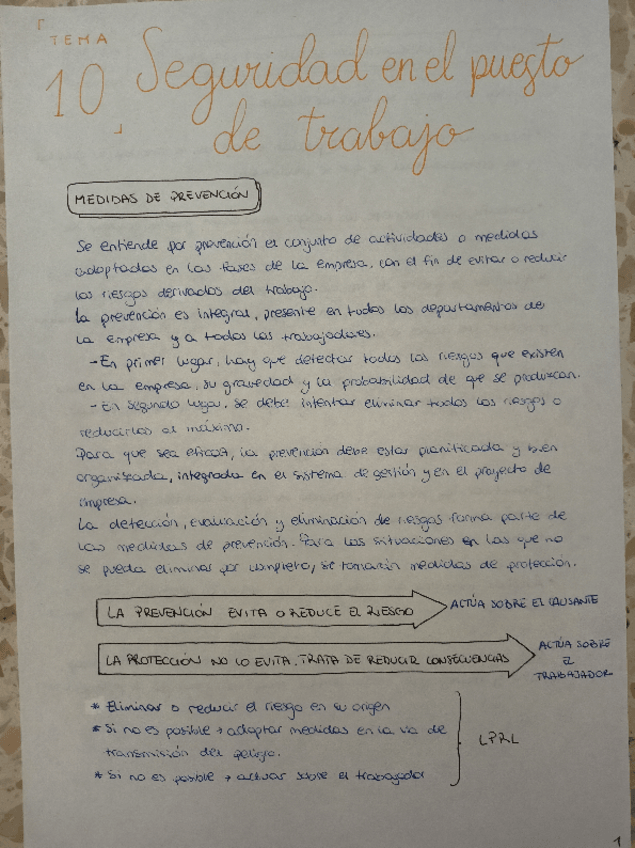 TEMA
10 Seguridad en el puesto
de trabajo
MEDIDAS DE PREVENCIÓN
Se entiende por prevención el conjunto de actividades o medidas
adoptadas en las fases de la empresa, con el fin de evitar o reducir
los riesgos derivados del trabajo.
La prevención es integral, presente en todos los departamentos de
la empresa y a todos los trabajadores.
- En primer lugar, hay que detectar todos los riesgos que existen
en la empresa, su gravedad y la probabilidad de que se produzcan.
- En segundo lugar, se debe intentar eliminar todos los riesgos o
reducirlos al máximo.
Para que sea eficaz, la prevención debe estar planificada y bien
organizada, integrada en el sistema de gestión y en el proyecto de
empresa.
La detección, evaluación y eliminación de riesgos forma parte de
las medidas de prevención. Para las situaciones en las que no
se pueda eliminar por completo, se tomarán medidas de protección.
LA PREVENCIÓN EVITA O REDUCE EL RIESGO
ACTÚA SOBRE EL CAUSANTE
LA PROTECCIÓN NO LO EVITA, TRATA DE REDUCIR CONSECUENCIAS
ACTÚA SOBRE
EL
TRABAJADOR
* Eliminar o reducir el riesgo en su origen
* Si no es posible → adoptar medidas en la vía de
transmisión del peligro.
* Si no es posible → actuar sobre el trabajador
LPRL
1